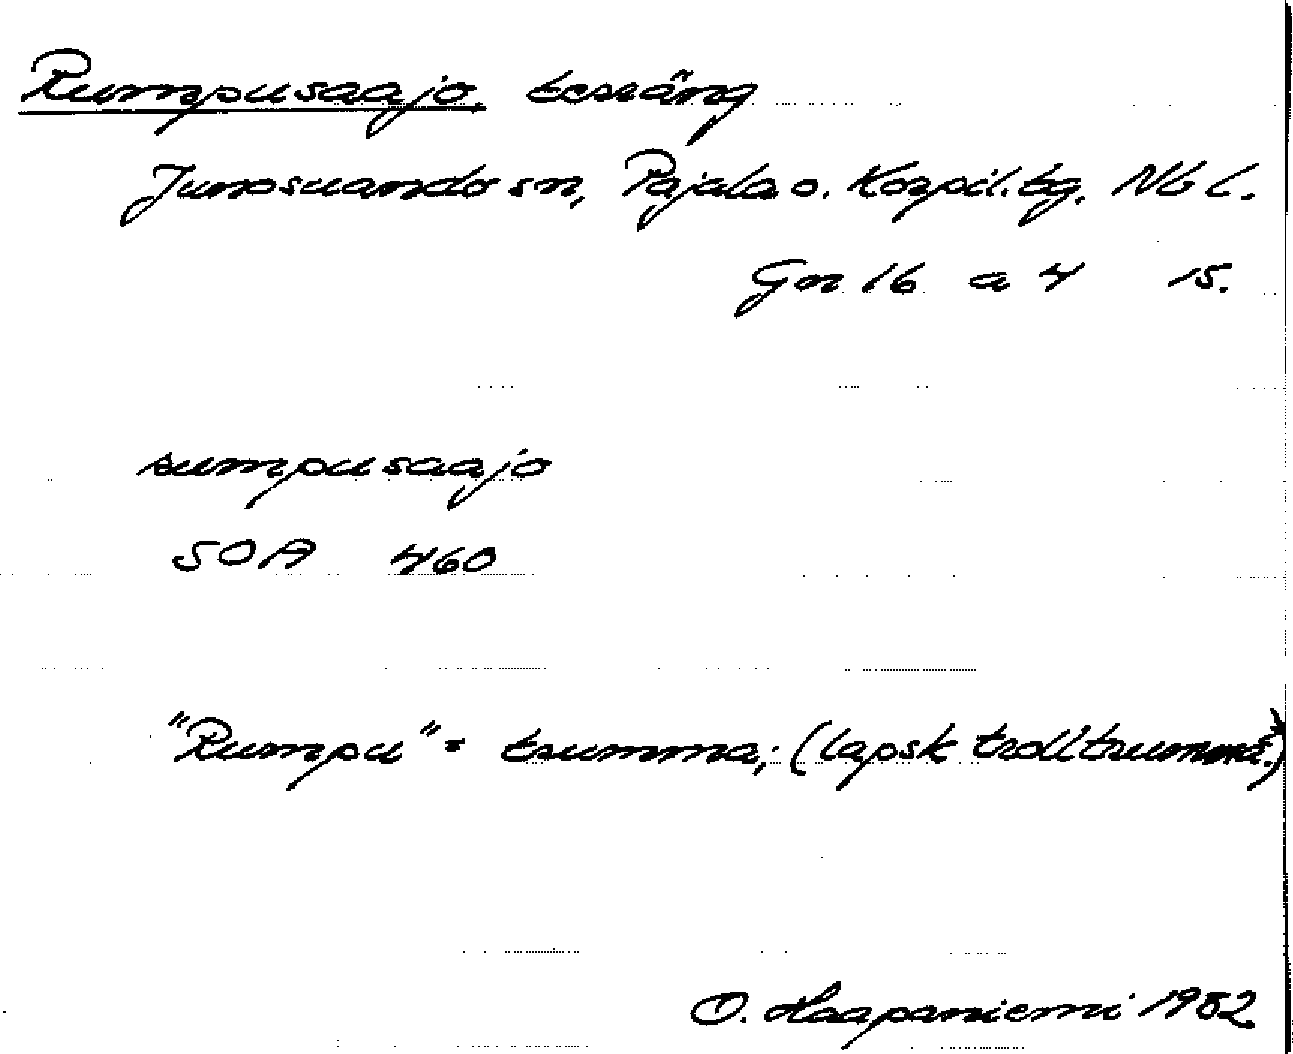 Rumpusaajo, terräng
Junosuando sn, Pajala o. Korpil. tg. Nb l.
Gn 16 a 4 15.
rumpusaajo
SOA 460
"Rumpu" = trumma; (lapsk trolltrumma.)
O. Haapaniemi 1982